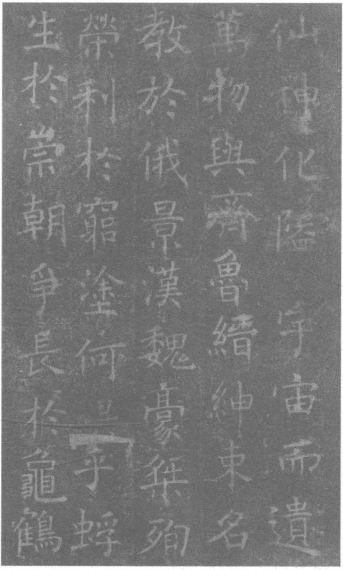 仙神化隘宇宙而遺
萬物與齊魯縉紳束名
教於俄景漢魏豪桀殉
榮利於窮塗何乎蜉
生於崇朝爭長於龜鶴